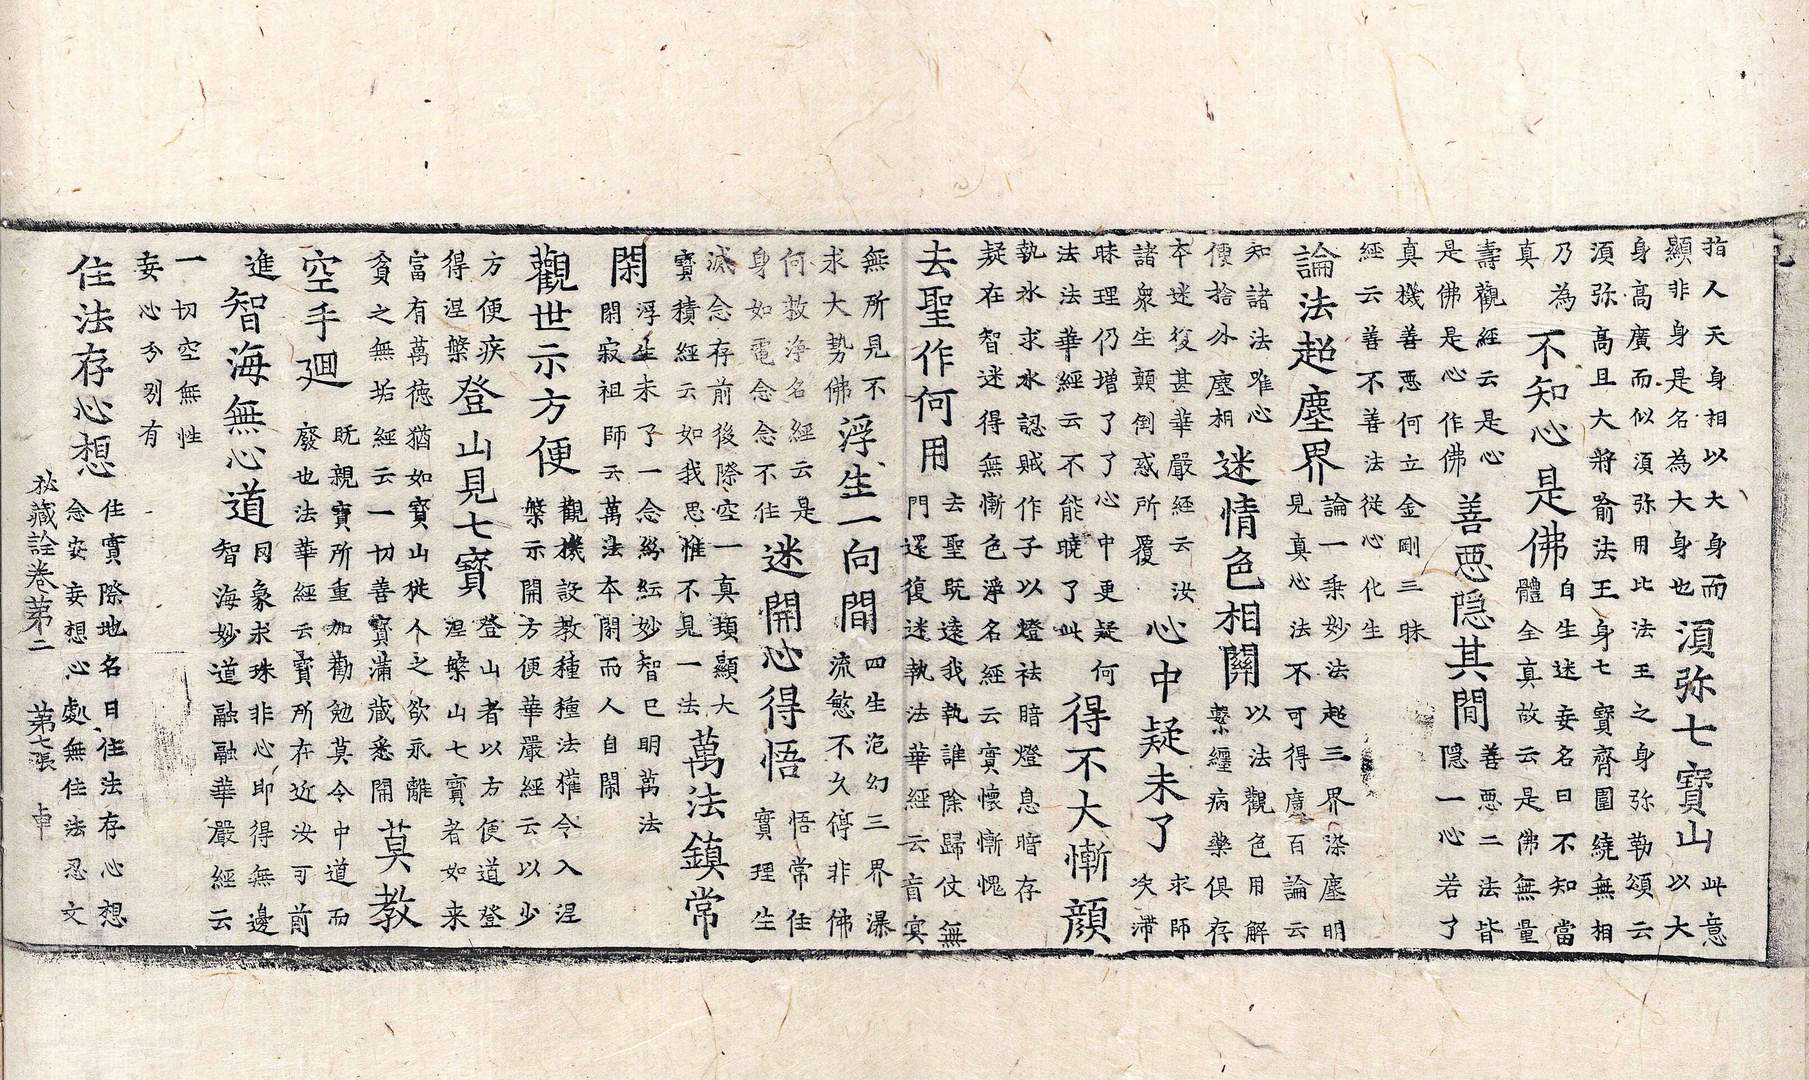 指人天身相以大身而
顯非身是名為大身也
須弥七寶山
此意
以大
身高廣而似須弥用比法王之身弥勒頌云
須弥高且大將喻法王身七寶齊圍繞無相
乃為
真
不知心是佛
自生迷妄名曰不知當
體全真故云是佛無量
壽觀經云是心
是佛是心作佛
善悪隱其間
善悪二法皆
隱一心若了
真機善悪何立金剛三昧
經云善不善法從心化生
論法超塵界
論一乘妙法超三界染塵明
見真心法不可得廣百論云
知諸法唯心
便捨外塵相
迷情色相關
以法觀色用解
繫纏病藥俱存
本迷復甚華嚴經云汝
諸衆生顛倒惑所覆
心中疑未了
求師
决滯
昧理仍增了了心中更疑何
法法華經云不能曉了此
得不大慚顔
執氷求水認賊作子以燈祛暗燈息暗存
疑在智迷得無慚色淨名經云實懷慚愧
去聖作何用
去聖既遠我執誰除歸仗無
門還復迷執法華經云盲冥
無所見不
求大勢佛
浮生一向間
四生泡幻三界瀑
流慜不久停非佛
何救浄名經云是
身如電念念不住
迷開心得悟
悟常住
實理生
滅念存前後際空一真頓顯大
寳積經云如我思惟不見一法
萬法鎮常
閑
浮生未了一念紛紜妙智已明萬法
閑寂祖師云萬法本閑而人自閙
觀世示方便
觀機設教種種法權令入涅
槃示開方便華嚴經云以少
方便疾
得涅槃
登山見七寶
登山者以方便道登
涅槃山七寶者如来
富有萬德猶如寶山徒人之欲永離
貪之無垢經云一切善寶滿蔵悉開
莫教
空手廻
既親寶所重加勸勉莫令中道而
廢也法華經云寶所在近汝可前
進
智海無心道
冈象求珠非心即得無邊
智海妙道融融華嚴經云
一切空無性
妄心分別有
住法存心想
住實際地名曰住法存心想
念妄妄想心處無住法忍文
秘藏詮卷第二　第七張　車